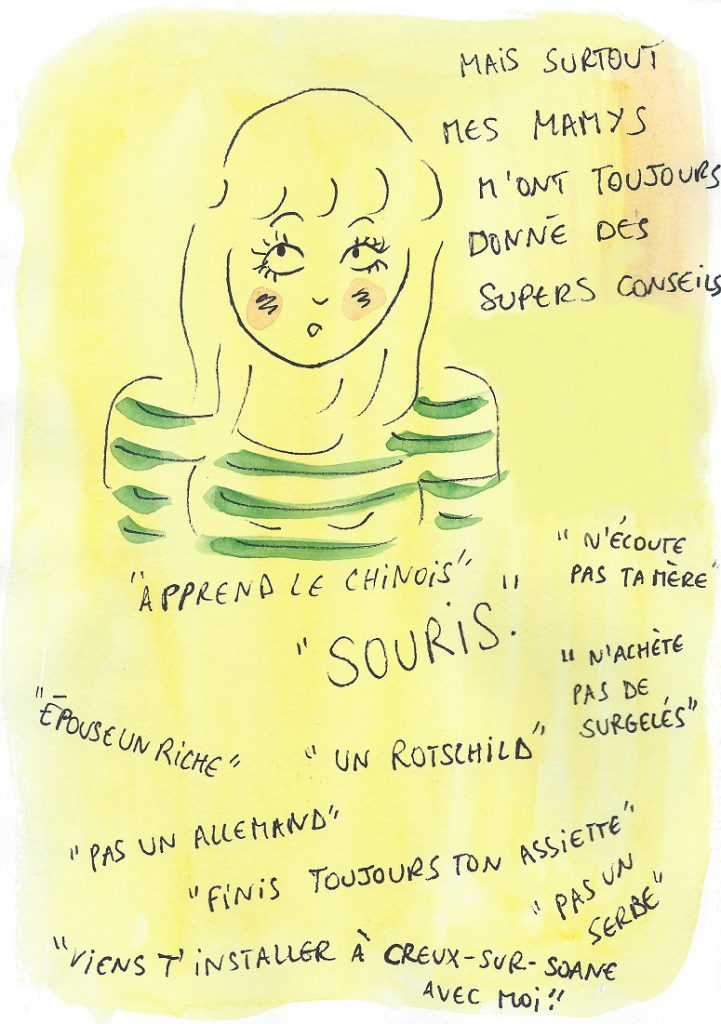 MAIS SURTOUT
MES MAMYS
M'ONT TOUJOURS
DONNÉ DES
SUPERS CONSEILS
"APPREND LE CHINOIS"
"N'ÉCOUTE
PAS TA MÈRE"
"SOURIS."
"N'ACHÈTE
PAS DE
SURGELÉS"
"ÉPOUSE UN RICHE"
"UN ROTSCHILD"
"PAS UN ALLEMAND"
"FINIS TOUJOURS TON ASSIETTE"
"PAS UN
SERBE"
"VIENS T'INSTALLER À CREUX-SUR-SOANE
AVEC MOI!!"